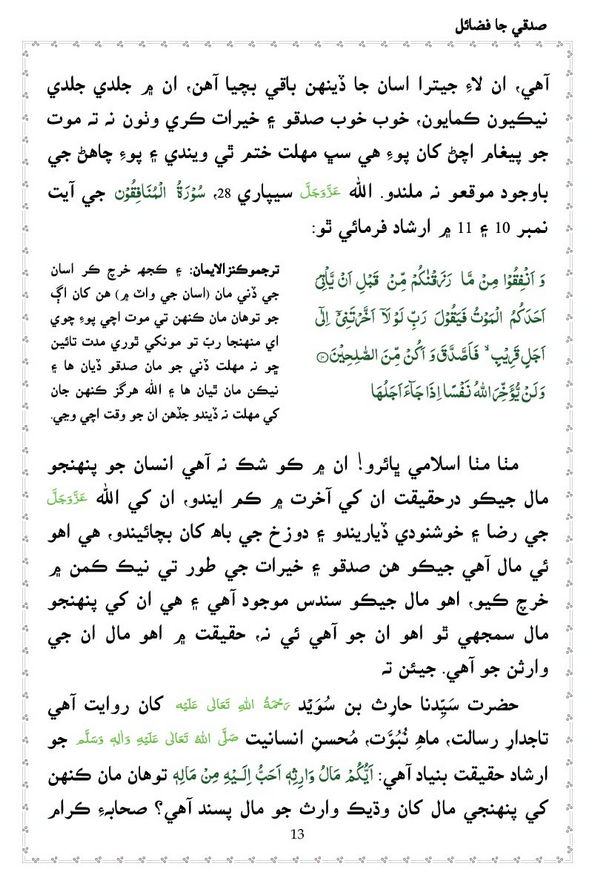 صدقي جا فضائل
آهي، ان لاءِ جيترا اسان جا ڏينهن باقي بچيا آهن، ان ۾ جلدي جلدي
نيڪيون ڪمايون، خوب خوب صدقو ۽ خيرات ڪري وٺون نہ تہ موت
جو پيغام اچڻ کان پوءِ هي سڀ مهلت ختم ٿي ويندي ۽ پوءِ چاهڻ جي
باوجود موقعو نہ ملندو. الله عَزَّوَجَلَّ سيپاري 28، سُوْرَةُ الْمُنَافِقُوْن جي آيت
نمبر 10 ۽ 11 ۾ ارشاد فرمائي ٿو:
وَ اَنْفِقُوْا مِنْ مَّا رَزَقْنٰكُمْ مِّنْ قَبْلِ اَنْ يَّاْتِيَ
اَحَدَكُمُ الْمَوْتُ فَيَقُوْلَ رَبِّ لَوْ لَاۤ اَخَّرْتَنِيْۤ اِلٰۤى
اَجَلٍ قَرِيْبٍ ۙ فَاَصَّدَّقَ وَ اَكُنْ مِّنَ الصّٰلِحِيْنَ ۝۱۰
وَ لَنْ يُّؤَخِّرَ اللّٰهُ نَفْسًا اِذَا جَآءَ اَجَلُهَا
ترجموڪنزالايمان: ۽ ڪجهہ خرچ ڪر اسان
جي ڏني مان (اسان جي واٽ ۾) هن کان اڳ
جو توهان مان ڪنهن تي موت اچي پوءِ چوي
اي منهنجا ربّ تو مونکي ٿوري مدت تائين
ڇو نہ مهلت ڏني جو مان صدقو ڏيان ها ۽
نيڪن مان ٿيان ها ۽ الله هرگز ڪنهن جان
کي مهلت نہ ڏيندو جڏهن ان جو وقت اچي وڃي.
مٺا مٺا اسلامي ڀائرو! ان ۾ ڪو شڪ نہ آهي انسان جو پنهنجو
مال جيڪو درحقيقت ان کي آخرت ۾ ڪم ايندو، ان کي الله عَزَّوَجَلَّ
جي رضا ۽ خوشنودي ڏياريندو ۽ دوزخ جي باهہ کان بچائيندو، هي اهو
ئي مال آهي جيڪو هن صدقو ۽ خيرات جي طور تي نيڪ ڪمن ۾
خرچ ڪيو، اهو مال جيڪو سندس موجود آهي ۽ هي ان کي پنهنجو
مال سمجهي ٿو اهو ان جو آهي ئي نہ، حقيقت ۾ اهو مال ان جي
وارثن جو آهي. جيئن تہ
حضرت سَيِّدنا حارِث بن سُوَيِّد رَحْمَةُ اللهِ تَعَالٰی عَلَيْه کان روايت آهي
تاجدارِ رسالت، ماهِ نُبُوَّت، مُحسنِ انسانيت صَلَّی اللهُ تَعَالٰی عَلَيْهِ وَاٰلِهٖ وَسَلَّم جو
ارشاد حقيقت بنياد آهي: اَيُّكُمْ مَالُ وَارِثِهٖ اَحَبُّ اِلَيْهِ مِنْ مَالِهٖ توهان مان ڪنهن
کي پنهنجي مال کان وڌيڪ وارث جو مال پسند آهي؟ صحابہءِ ڪرام
13